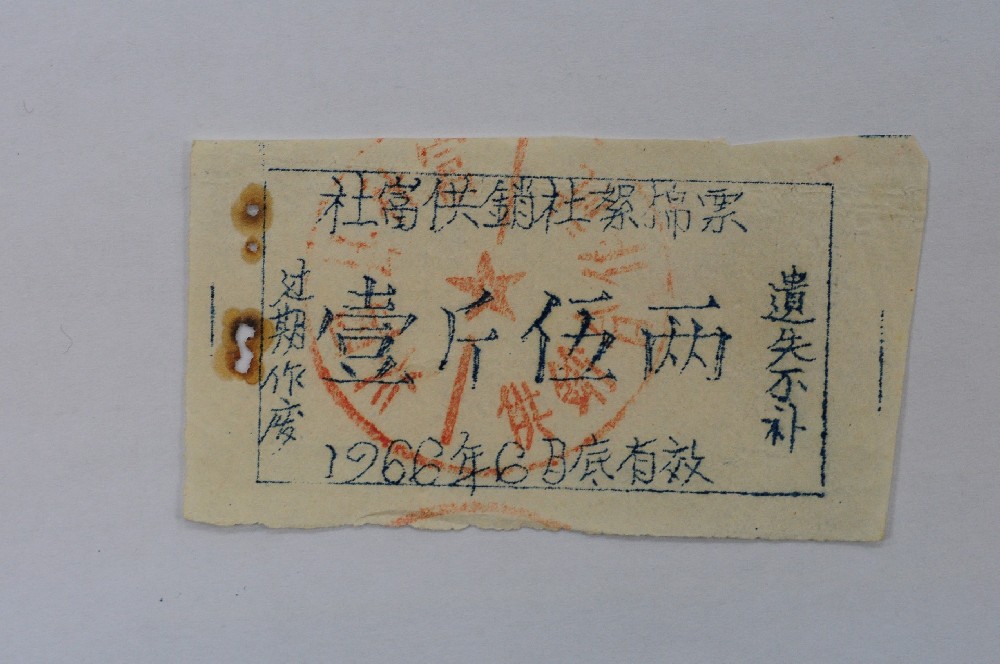 社富供銷社絮棉票
过期作废
壹斤伍两
遺失不补
1966年6月底有效
供